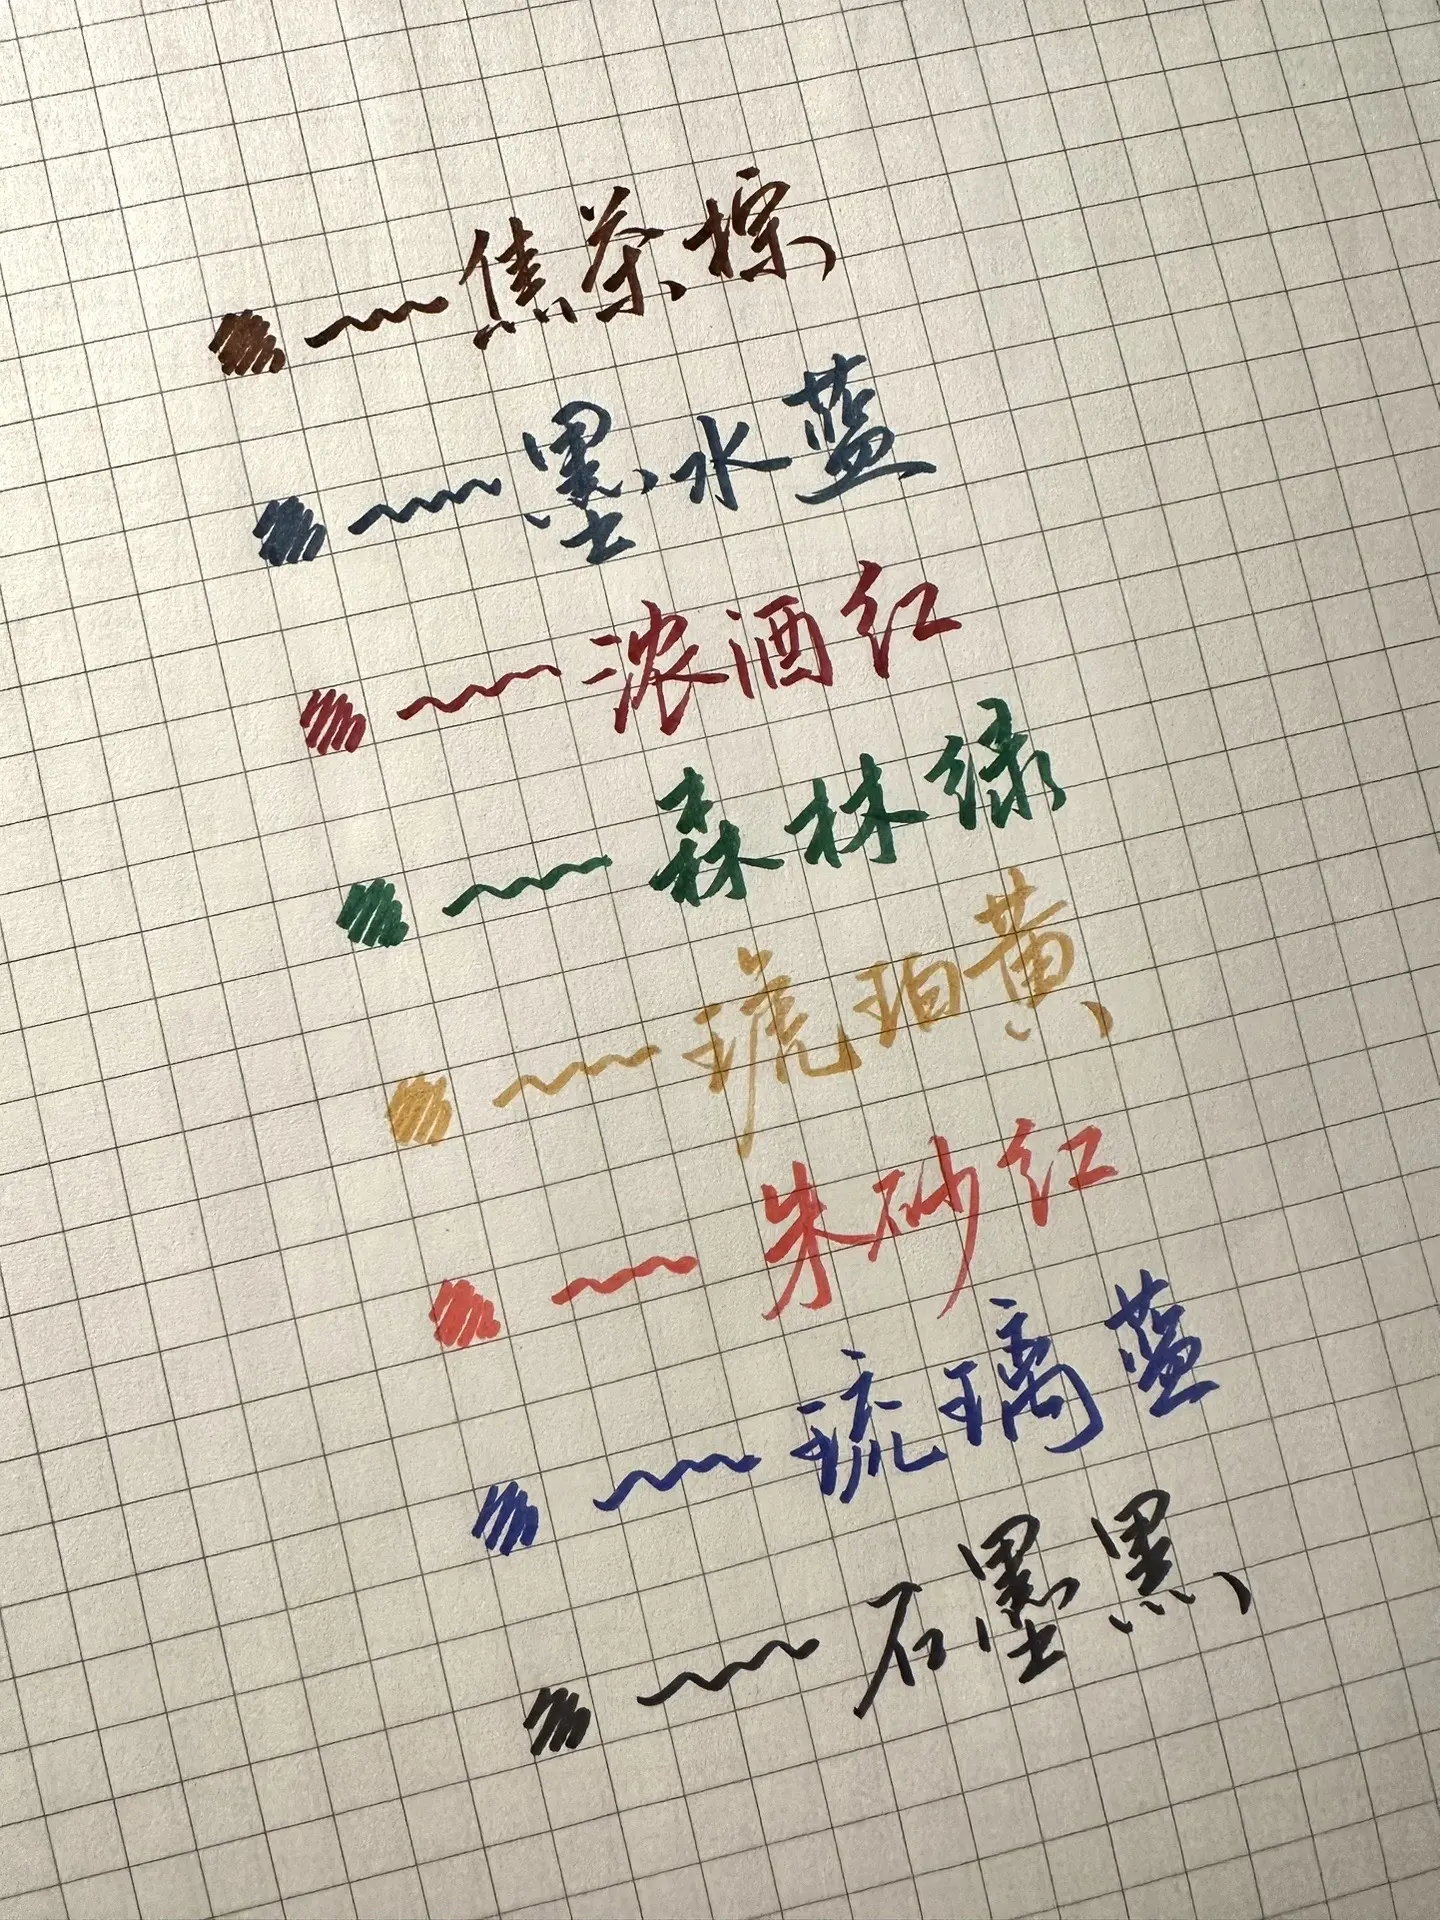 焦茶棕
墨水蓝
浓酒红
森林绿
琥珀黄
朱砂红
琉璃蓝
石墨黑